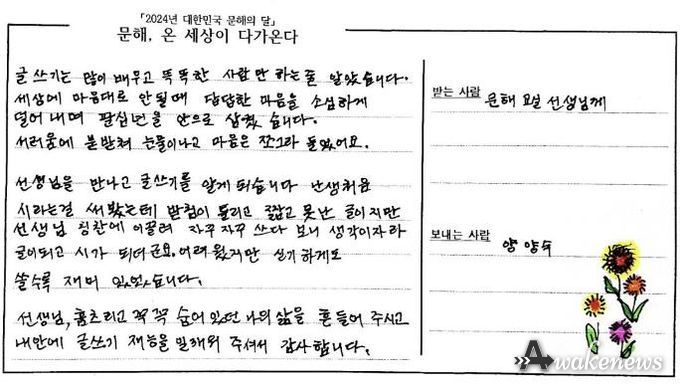 「2024년 대한민국 문해의 달」
문해, 온 세상이 다가온다
글 쓰기는 많이 배우고 똑똑한 사람만 하는줄 알았습니다.
세상에 마음대로 안될때 답답한 마음을 소심하게
덜어내며 팔십년을 안으로 삼켰습니다.
서러움에 복받쳐 눈물이나고 마음은 쪼그라 들었어요.
선생님을 만나고 글쓰기를 알게 되습니다 난생처음
시라는걸 써봤는데 받침이 틀리고 굵잡고 못난 글이지만
선생님 칭찬에 이끌려 자꾸자꾸 쓰다 보니 생각이자라
글이되고 시가 되더군요. 어려웠지만 신기하게도
쓸수록 재미 있었습니다.
선생님, 움츠리고 꼭꼭 숨어 있던 나의 삶을 흔들어 주시고
내안에 글쓰기 재능을 일깨워 주셔서 감사합니다.
받는 사람
문해 교실 선생님께
보내는 사람
양양숙
Awakenews